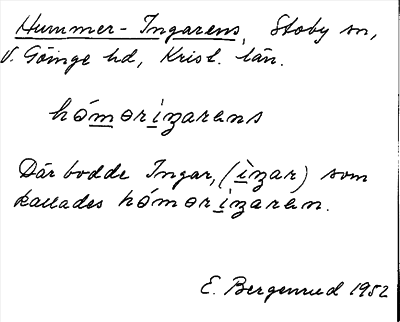 Hummer-Ingarens, Stoby sn,
V. Göinge hd, Krist. län.
hómərìŋarəns
Där bodde Ingar, (ìŋar) som
kallades hómərìŋarən.
E. Bergenrud 1952